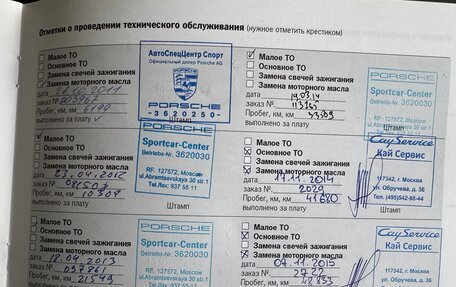 Отметки о проведении технического обслуживания (нужное отметить крестиком)
Малое ТО
Основное ТО
Замена свечей зажигания
Замена моторного масла
дата 21.10.2011
заказ №
Пробег, км, км
выполнено за плату
Штамп
АвтоСпецЦентр Спорт
Официальный дилер Porsche AG
PORSCHE
-3620250-
Малое ТО
Основное ТО
Замена свечей зажигания
Замена моторного масла
дата
заказ № 113165
Пробег, км, км
выполнено за плату
Штамп
PORSCHE
Sportcar-Center
Betriebs-Nr. 3620030
RF, 127572, Moscow
ul.Abramtsevskaya 30 str.1
Tel./fax: 937 55 11
Малое ТО
Основное ТО
Замена свечей зажигания
Замена моторного масла
дата 23.04.2012
заказ №
Пробег, км, км 10309
выполнено за плату
Штамп
PORSCHE
Sportcar-Center
Betriebs-Nr. 3620030
RF, 127572, Moscow
ul.Abramtsevskaya 30 str.1
Tel./fax: 937 55 11
Малое ТО
Основное ТО
Замена свечей зажигания
Замена моторного масла
дата 17.11.2014
заказ № 2029
Пробег, км, км 41680
выполнено за плату
Штамп
CayService
Кай Сервис
117342, г. Москва
ул. Обручева, д. 36
Тел. (495)542-88-44
Малое ТО
Основное ТО
Замена свечей зажигания
Замена моторного масла
дата 18.04.2013
заказ № 037861
Пробег, км, км 21549
выполнено за плату
PORSCHE
Sportcar-Center
Betriebs-Nr. 3620030
RF, 127572, Moscow
ul.Abramtsevskaya 30 str.1
Малое ТО
Основное ТО
Замена свечей зажигания
Замена моторного масла
дата 07.11.2015
заказ № 2722
Пробег, км, км 48853
CayService
Кай Сервис
117342, г. Москва
ул. Обручева, д. 36